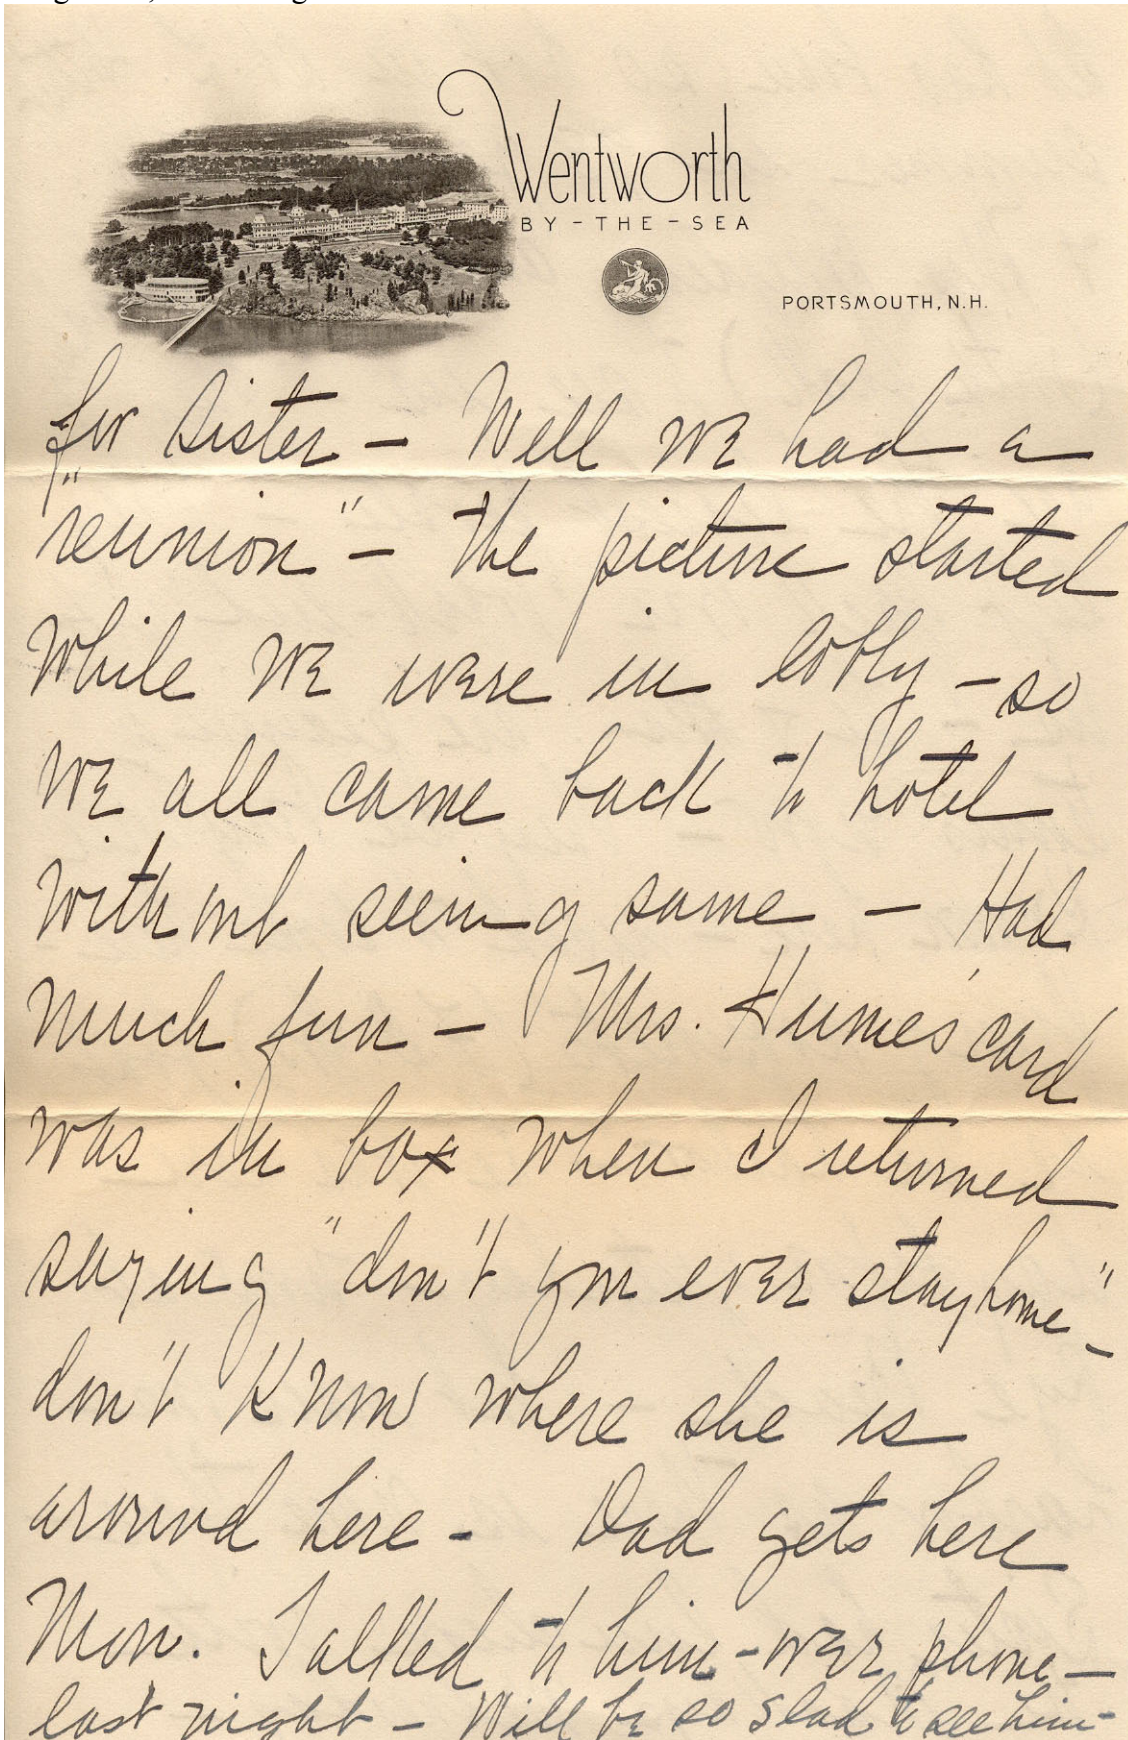 Wentworth
BY-THE-SEA
PORTSMOUTH, N.H.
for Sister – Well we had a
"reunion" – the picture started
while we were in lobby – so
we all came back to hotel
without seeing same – Had
much fun – Mrs. Humes' card
was in box when I returned
saying "don't you ever stay home" –
don't know where she is
around here – Dad gets here
Mon. Talked to him – over phone –
last night – Will be so glad to see him –